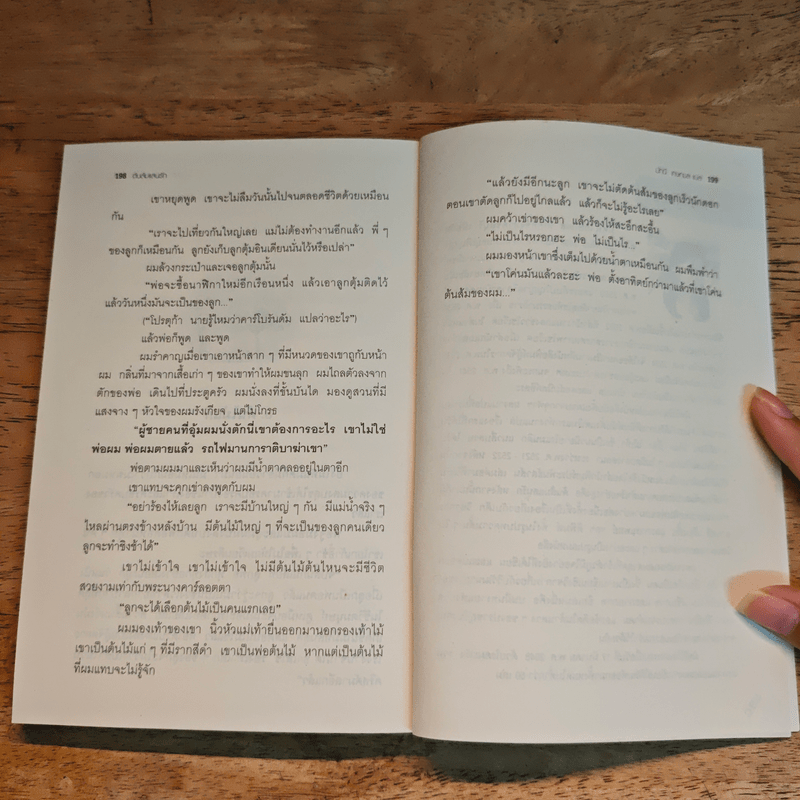 198 ต้นส้มแสนรัก
เขาหยุดพูด เขาจะไม่ลืมวันนั้นไปจนตลอดชีวิตด้วยเหมือน
กัน
“เราจะไปเที่ยวกันใหญ่เลย แม่ไม่ต้องทำงานอีกแล้ว พี่ ๆ
ของลูกก็เหมือนกัน ลูกยังเก็บลูกตุ้มอินเดียนนั่นไว้หรือเปล่า”
ผมล้วงกระเป๋าและเจอลูกตุ้มนั้น
“พ่อจะซื้อนาฬิกาใหม่อีกเรือนหนึ่ง แล้วเอาลูกตุ้มติดไว้
แล้ววันหนึ่งมันจะเป็นของลูก...”
(“โปรตุก้า นายรู้ไหมว่าคาร์โบรันดัม แปลว่าอะไร”)
แล้วพ่อก็พูด และพูด
ผมรำคาญเมื่อเขาเอาหน้าสาก ๆ ที่มีหนวดของเขาถูกับหน้า
ผม กลิ่นที่มาจากเสื้อเก่า ๆ ของเขาทำให้ผมขนลุก ผมไถลตัวลงจาก
ตักของพ่อ เดินไปที่ประตูครัว ผมนั่งลงที่ขั้นบันได มองดูสวนที่มี
แสงจาง ๆ หัวใจของผมรังเกียจ แต่ไม่โกรธ
“ผู้ชายคนที่อุ้มผมนั่งตักนี่เขาต้องการอะไร เขาไม่ใช่
พ่อผม พ่อผมตายแล้ว รถไฟมานการาติบาฆ่าเขา”
พ่อตามผมมาและเห็นว่าผมมีน้ำตาคลออยู่ในตาอีก
เขาแทบจะคุกเข่าลงพูดกับผม
“อย่าร้องไห้เลยลูก เราจะมีบ้านใหญ่ ๆ กัน มีแม่น้ำจริง ๆ
ไหลผ่านตรงข้างหลังบ้าน มีต้นไม้ใหญ่ ๆ ที่จะเป็นของลูกคนเดียว
ลูกจะทำชิงช้าได้”
เขาไม่เข้าใจ เขาไม่เข้าใจ ไม่มีต้นไม้ต้นไหนจะมีชีวิต
สวยงามเท่ากับพระนางคาร์ลอตตา
“ลูกจะได้เลือกต้นไม้เป็นคนแรกเลย”
ผมมองเท้าของเขา นิ้วหัวแม่เท้ายื่นออกมานอกรองเท้าไม้
เขาเป็นต้นไม้แก่ ๆ ที่มีรากสีดำ เขาเป็นพ่อต้นไม้ หากแต่เป็นต้นไม้
ที่ผมแทบจะไม่รู้จัก
199
“แล้วยังมีอีกนะลูก เขาจะไม่ตัดต้นส้มของลูกเร็วนักดอก
ตอนเขาตัดลูกก็ไปอยู่ไกลแล้ว แล้วก็จะไม่รู้อะไรเลย”
ผมคว้าเข่าของเขา แล้วร้องไห้สะอึกสะอื้น
“ไม่เป็นไรหรอกฮะ พ่อ ไม่เป็นไร...”
ผมมองหน้าเขาซึ่งเต็มไปด้วยน้ำตาเหมือนกัน ผมพึมพำว่า
“เขาโค่นมันแล้วละฮะ พ่อ ตั้งอาทิตย์กว่ามาแล้วที่เขาโค่น
ต้นส้มของผม...”